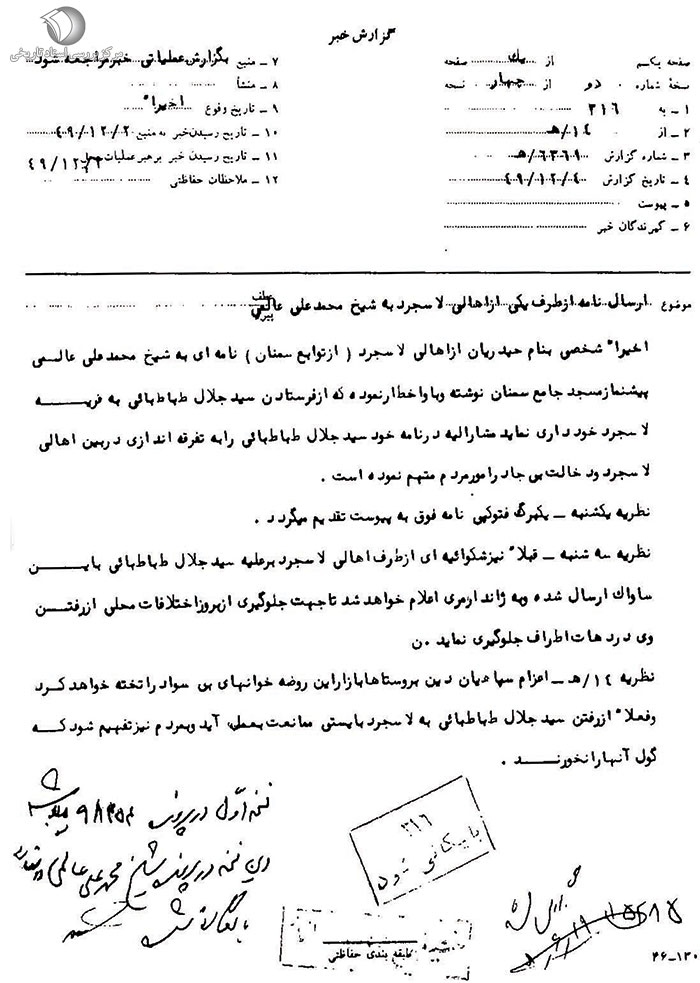 مرکز بررسی اسناد تاریخی
گزارش خبر
صفحه یکم از یك صفحه
نسخهٔ شماره دو از چهار نسخه
۱ ـ به ۳۱۶
۲ ـ از ۱۴/هـ
۳ ـ شماره گزارش ۶۳۶۹/هـ
۴ ـ تاریخ گزارش ۴۹/۱۲/۴
۵ ـ پیوست
۶ ـ گیرندگان خبر
۷ ـ منبع بگزارش عملیاتی خبر مراجعه شود
۸ ـ منشأ
۹ ـ تاریخ وقوع اخیراً
۱۰ ـ تاریخ رسیدن خبر به منبع ۴۹/۱۲/۲
۱۱ ـ تاریخ رسیدن خبر برهبر عملیات محل ۴۹/۱۲/۲
۱۲ ـ ملاحظات حفاظتی
موضوع ارسال نامه ازطرف یکی ازاهالی لاسجرد به شیخ محمدعلی عالمی
اخیراً شخصی بنام حیدریان ازاهالی لاسجرد (ازتوابع سمنان) نامه ای به شیخ محمدعلی عالمی
پیشنمازمسجد جامع سمنان نوشته وباواخطارنموده که ازفرستادن سیدجلال طباطبائی به قریه
لاسجرد خودداری نماید مشارالیه درنامه خود سیدجلال طباطبائی رابه تفرقه اندازی دربین اهالی
لاسجرد ودخالت بی جادرامورمردم متهم نموده است .
نظریه یکشنبه ـ یکبرگ فتوکپی نامه فوق به پیوست تقدیم میگردد .
نظریه سه شنبه ـ قبلاً نیزشکوائیه ای ازطرف اهالی لاسجرد برعلیه سیدجلال طباطبائی باین
ساواك ارسال شده وبه ژاندارمری اعلام خواهد شد تاجهت جلوگیری ازبروزاختلافات محلی ازرفتن
وی دردهات اطراف جلوگیری نماید .ن
نظریه ۱۴/هـ ـ اعزام سپاهیان دین بروستاهابازاراین روضه خوانهای بی سواد راتخته خواهدکرد
وفعلاً ازرفتن سیدجلال طباطبائی به لاسجرد بایستی ممانعت بعمل آید وبمردم نیزتفهیم شود که
گول آنهارانخورند .
نسخه اول در پرونده
در پرونده شیخ محمدعلی عالمی
۳۱۶
بایگانی شود
طبقه بندی حفاظتی
۴۶-۱۳۰